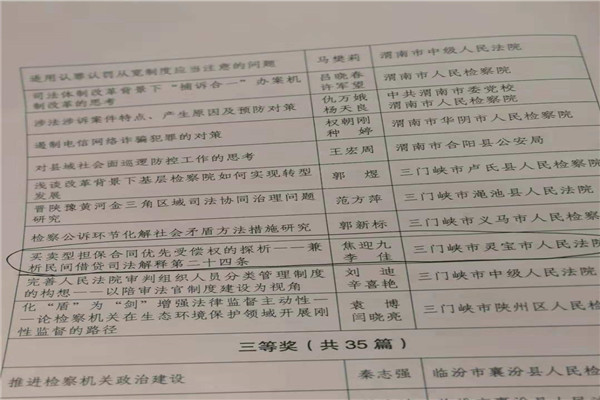 适用认罪认罚从宽制度应当注意的问题 马樊莉 渭南市中级人民法院
司法体制改革背景下“捕诉合一”办案机 吕晓春 渭南市人民检察院
制改革的思考 许军望
涉法涉诉案件特点、产生原因及预防对策 仇万娥 中共渭南市委党校
杨天良 渭南市人民检察院
遏制电信网络诈骗犯罪的对策 权朝刚 渭南市华阴市人民检察院
种 婷
对县域社会面巡逻防控工作的思考 王宏周 渭南市合阳县公安局
浅谈改革背景下基层检察院如何实现转型 郭 煜 三门峡市卢氏县人民检察
发展
晋陕豫黄河金三角区域司法协同治理问题 范方萍 三门峡市渑池县人民法院
研究
检察公诉环节化解社会矛盾方法措施研究 郭新标 三门峡市义马市人民检察
买卖型担保合同优先受偿权的探析——兼 焦迎九 三门峡市灵宝市人民法院
析民间借贷司法解释第二十四条 李 佳
完善人民法院审判组织人员分类管理制度 刘 迪 三门峡市中级人民法院
的构想——以陪审法官制度建设为视角 辛喜艳
化“盾”为“剑”增强法律监督主动性— 袁 博 三门峡市陕州区人民检
—论检察机关在生态环境保护领域开展刚 闫晓亮
性监督的路径
三等奖（共35篇）
推进检察机关政治建设 秦志强 临汾市襄汾县人民检
临汾市襄汾县人民检